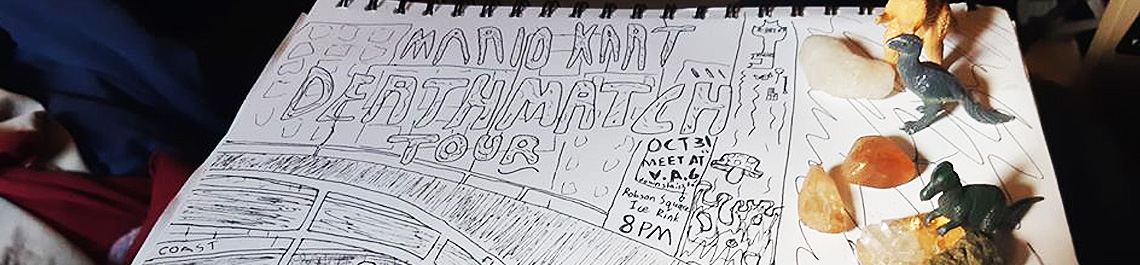 MARIO KART
DEATHMATCH
TOUR
OCT 31
MEET AT
V.A.G
Downstairs
Robson Square
Ice Rink
8PM
COAST